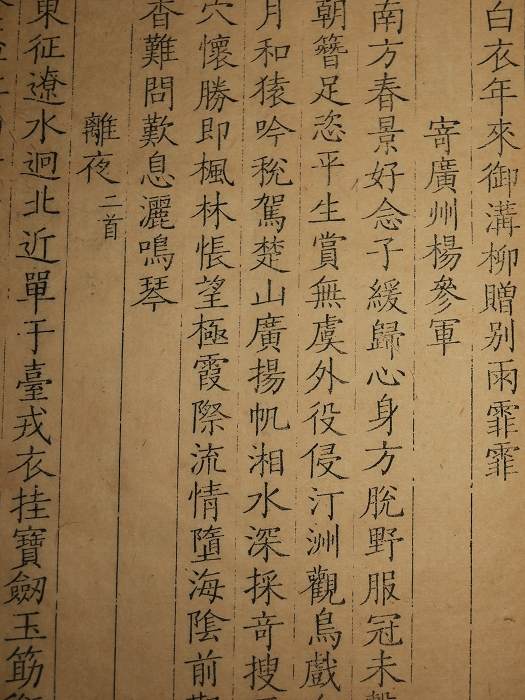 白衣年來御溝柳贈别雨霏霏
寄廣州楊參軍
南方春景好念子緩歸心身方脫野服冠未
朝簪足恣平生賞無虞外役侵汀洲觀鳥戲
月和猿吟稅駕楚山廣揚帆湘水深採奇搜
穴懷勝即楓林悵望極霞際流情墮海陰前
杳難問歎息灑鳴琴
離夜二首
東征遼水迥北近單于臺戎衣挂寶劔玉筯